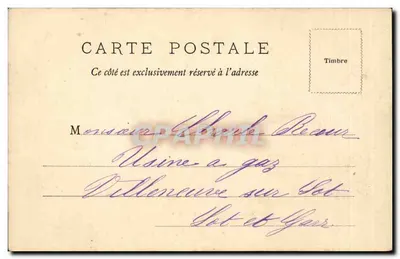 CARTE POSTALE
Timbre
Ce côté est exclusivement réservé à l'adresse
Monsieur Recour
Usine a gaz
Villeneuve sur Lot
Lot et Gar